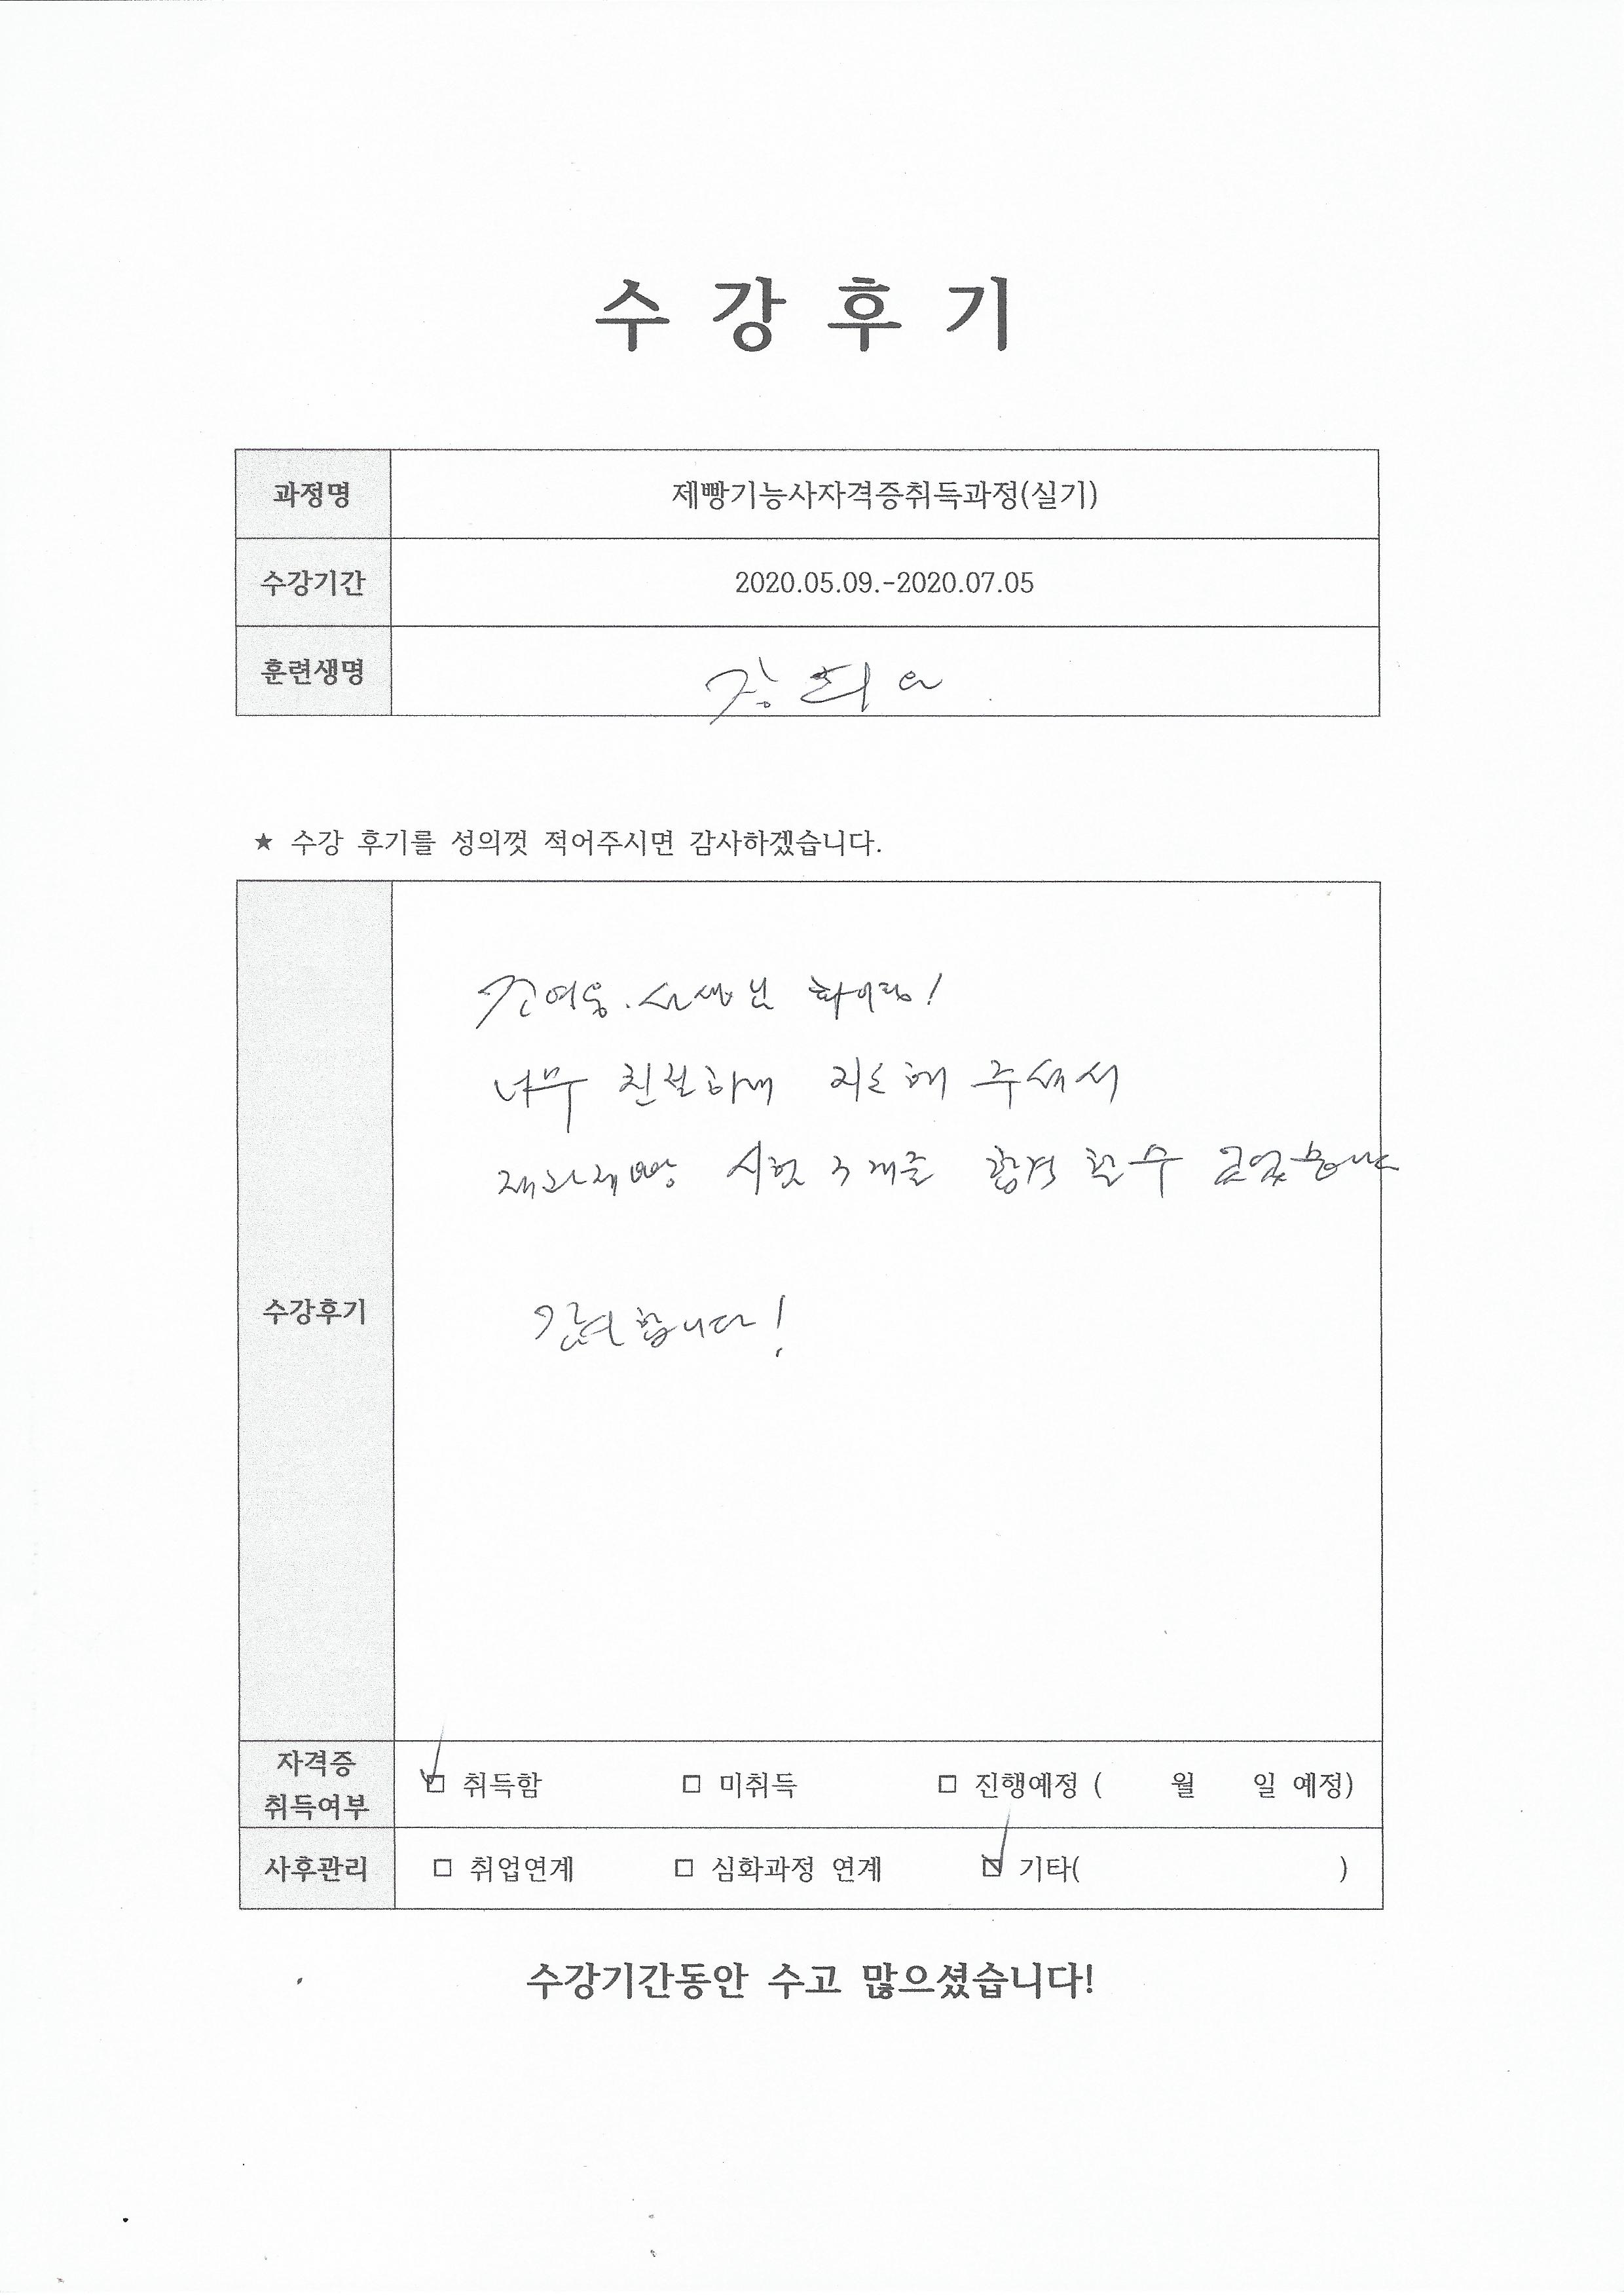 수 강 후 기
과정명 제빵기능사자격증취득과정(실기)
수강기간 2020.05.09.-2020.07.05
훈련생명
★ 수강 후기를 성의껏 적어주시면 감사하겠습니다.
선생님 화이팅!
너무 친절하게 지도해 주셔서
제과제빵 시험 합격 할 수
수강후기
합니다!
자격증
취득여부 □ 취득함 □ 미취득 □ 진행예정 ( 월 일 예정)
사후관리 □ 취업연계 □ 심화과정 연계 □ 기타( )
수강기간동안 수고 많으셨습니다!